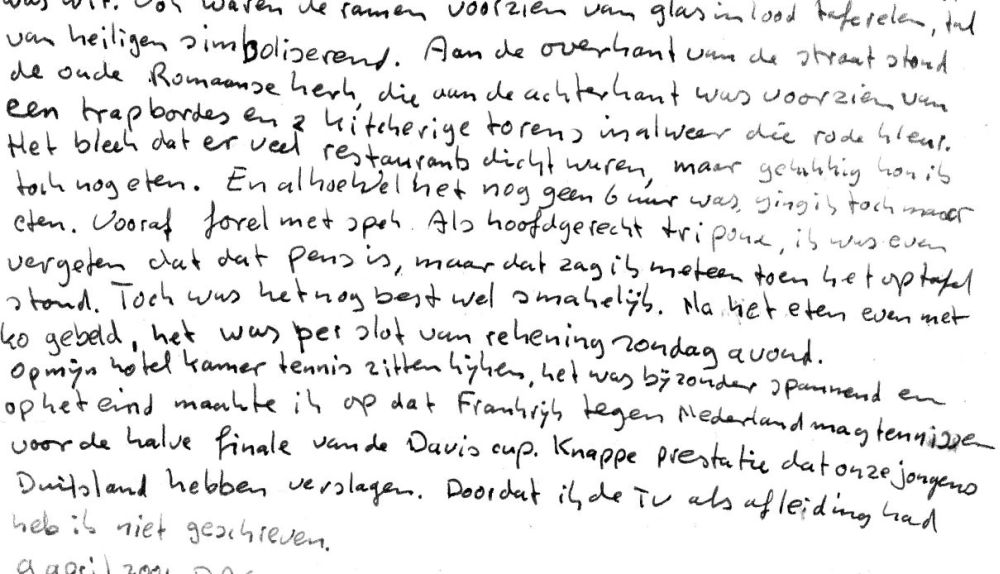 was wit. Ook waren de ramen voorzien van glas in lood taferelen, tal
van heiligen simboliserend. Aan de overkant van de straat stond
de oude Romaanse kerk, die aan de achterkant was voorzien van
een trapbordes en 2 kitcherige torens in alweer die rode kleur.
Het bleek dat er veel restaurants dicht waren, maar gelukkig kon ik
toch nog eten. En alhoewel het nog geen 6 uur was, ging ik toch maar
eten. Vooraf forel met spek. Als hoofdgerecht tripoux, ik was even
vergeten dat dat pens is, maar dat zag ik meteen toen het op tafel
stond. Toch was het nog best wel smakelijk. Na het eten even met
ko gebeld, het was per slot van rekening zondag avond.
Op mijn hotel kamer tennis zitten kijken, het was bijzonder spannend en
op het eind maakte ik op dat Frankrijk tegen Nederland mag tennissen
voor de halve finale van de Davis cup. Knappe prestatie dat onze jongens
Duitsland hebben verslagen. Doordat ik de TV als afleiding had
heb ik niet geschreven.
9 april 2001